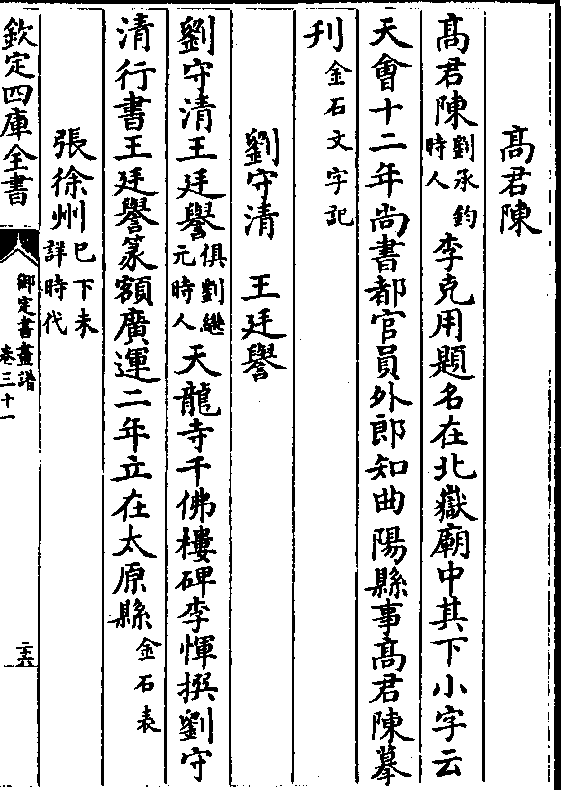 髙君陳
髙君陳劉承鈞時人李克用題名在北嶽廟中其下小字云
天會十二年尚書都官員外郎知曲陽縣事髙君陳摹
刋金石文字記
劉守清　王廷譽
劉守清王廷譽俱劉繼元時人天龍寺千佛樓碑李惲撰劉守
清行書王廷譽篆額廣運二年立在太原縣金石表
張徐州已下未詳時代
欽定四庫全書
御定書畫譜
卷三十一
二十六